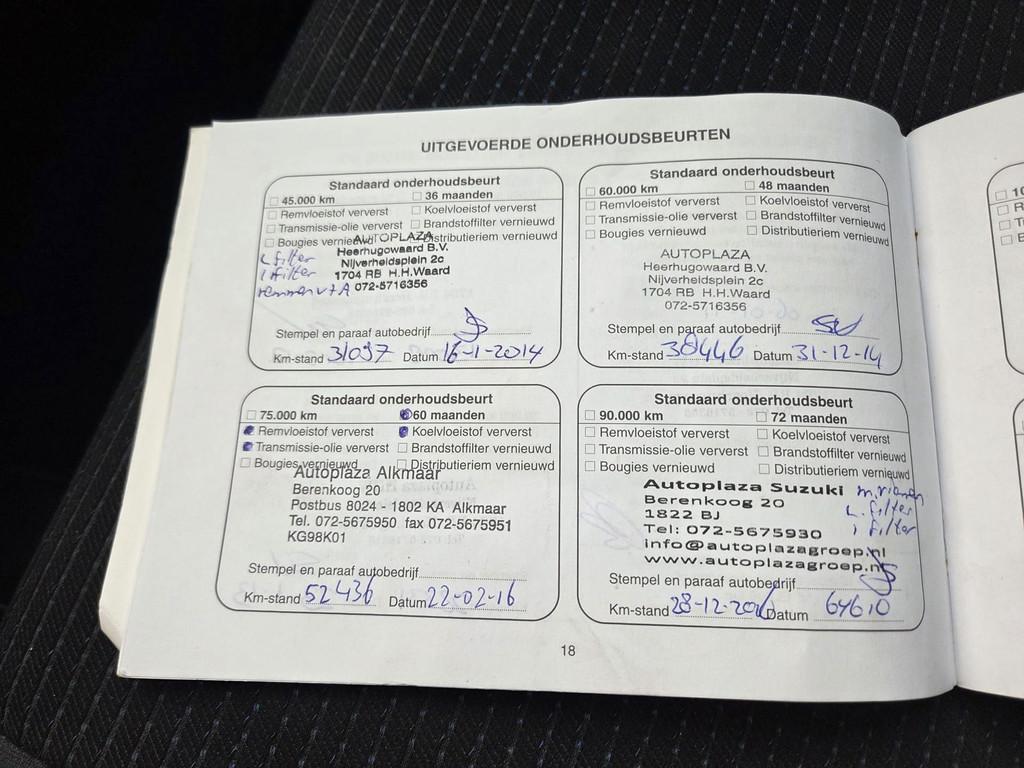 UITGEVOERDE ONDERHOUDSBEURTEN
Standaard onderhoudsbeurt
45.000 km 36 maanden
Remvloeistof ververst Koelvloeistof ververst
Transmissie-olie ververst Brandstoffilter vernieuwd
Bougies vernieuwd Distributieriem vernieuwd
AUTOPLAZA
Heerhugowaard B.V.
Nijverheidsplein 2c
1704 RB H.H.Waard
072-5716356
L filter
i filter
remmen v+A
Stempel en paraaf autobedrijf
Km-stand 31097 Datum 16-1-2014
Standaard onderhoudsbeurt
60.000 km 48 maanden
Remvloeistof ververst Koelvloeistof ververst
Transmissie-olie ververst Brandstoffilter vernieuwd
Bougies vernieuwd Distributieriem vernieuwd
AUTOPLAZA
Heerhugowaard B.V.
Nijverheidsplein 2c
1704 RB H.H.Waard
072-5716356
Stempel en paraaf autobedrijf
Km-stand 38446 Datum 31-12-14
Standaard onderhoudsbeurt
75.000 km 60 maanden
Remvloeistof ververst Koelvloeistof ververst
Transmissie-olie ververst Brandstoffilter vernieuwd
Bougies vernieuwd Distributieriem vernieuwd
Autoplaza Alkmaar
Berenkoog 20
Postbus 8024 - 1802 KA Alkmaar
Tel. 072-5675950 fax 072-5675951
KG98K01
Stempel en paraaf autobedrijf
Km-stand 52436 Datum 22-02-16
Standaard onderhoudsbeurt
90.000 km 72 maanden
Remvloeistof ververst Koelvloeistof ververst
Transmissie-olie ververst Brandstoffilter vernieuwd
Bougies vernieuwd Distributieriem vernieuwd
Autoplaza Suzuki
Berenkoog 20
1822 BJ
Tel: 072-5675930
info@autoplazagroep.nl
www.autoplazagroep.nl
L. filter
i filter
Stempel en paraaf autobedrijf
Km-stand 28-12-2016 Datum 64610
18